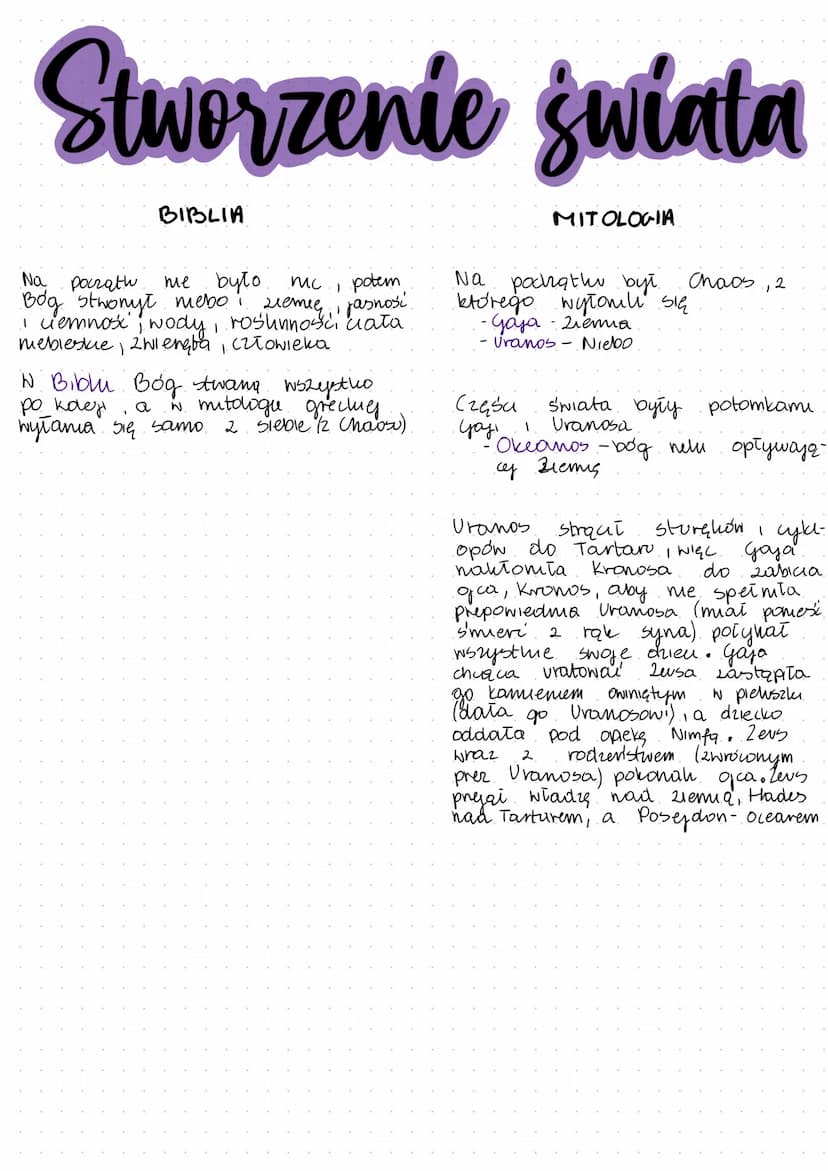 Stworzenie świata
BIBLIA
Na początku nie było nic, potem
Bóg stworzył niebo i ziemię, jasność
i ciemność, wody, roślinność, ciała
niebieskie, zwierzęta, człowieka
W Biblii Bóg stwarza wszystko
po kolei, a w mitologii greckiej
wyłania się samo z siebie (z Chaosu)
MITOLOGIA
Na początku był Chaos, z
którego wyłonili się
- Gaja - Ziemia
- Uranos - Niebo
Części świata były potomkami
Gaji i Uranosa
- Okeanos - bóg rzeki opływają-
cej Ziemię
Uranos strącił sturękich i cykl-
opów do Tartaru, więc Gaja
nakłoniła Kronosa do zabicia
ojca, Kronos, aby nie spełniła
przepowiednia Uranosa (miał ponieść
śmierć z rąk syna) połykał
wszystkie swoje dzieci. Gaja
chcąca uratować Zeusa zastąpiła
go kamieniem owiniętym w pieluszki
(dała go Uranosowi), a dziecko
oddała pod opiekę Nimfą. Zeus
wraz z rodzeństwem (zwróconym
przez Uranosa) pokonali ojca. Zeus
przejął władzę nad ziemią, Hades
nad Tarturem, a Posejdon- oceanem